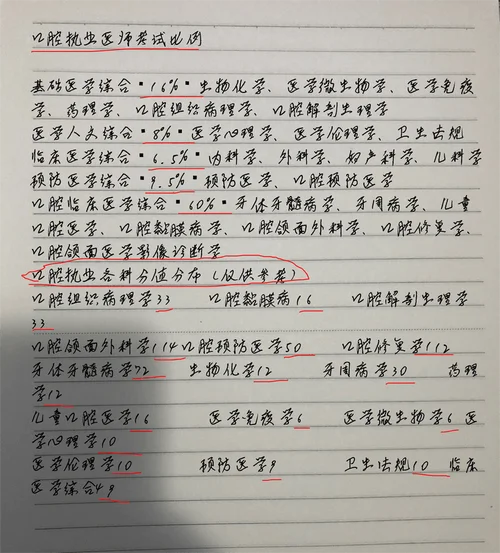 口腔执业医师考试比例
基础医学综合"16%"生物化学、医学微生物学、医学免疫
学、药理学、口腔组织病理学、口腔解剖生理学
医学人文综合"8%"医学心理学、医学伦理学、卫生法规
临床医学综合"6.5%"内科学、外科学、妇产科学、儿科学
预防医学综合"9.5%"预防医学、口腔预防医学
口腔临床医学综合"60%"牙体牙髓病学、牙周病学、儿童
口医学、口腔黏膜病学、口腔颌面外科学、口腔修复学、
口腔颌面医学影像诊断学
口腔执业各科分值分布(仅供参考)
口腔组织病理学33 口腔黏膜病16 口腔解剖生理学
33
口腔颌面外科学114 口腔预防医学50 口腔修复学112
牙体牙髓病学72 生物化学12 牙周病学30 药理
学12
儿童口腔医学16 医学免疫学6 医学微生物学6 医
学心理学10
医学伦理学10 预防医学9 卫生法规10 临床
医学综合49